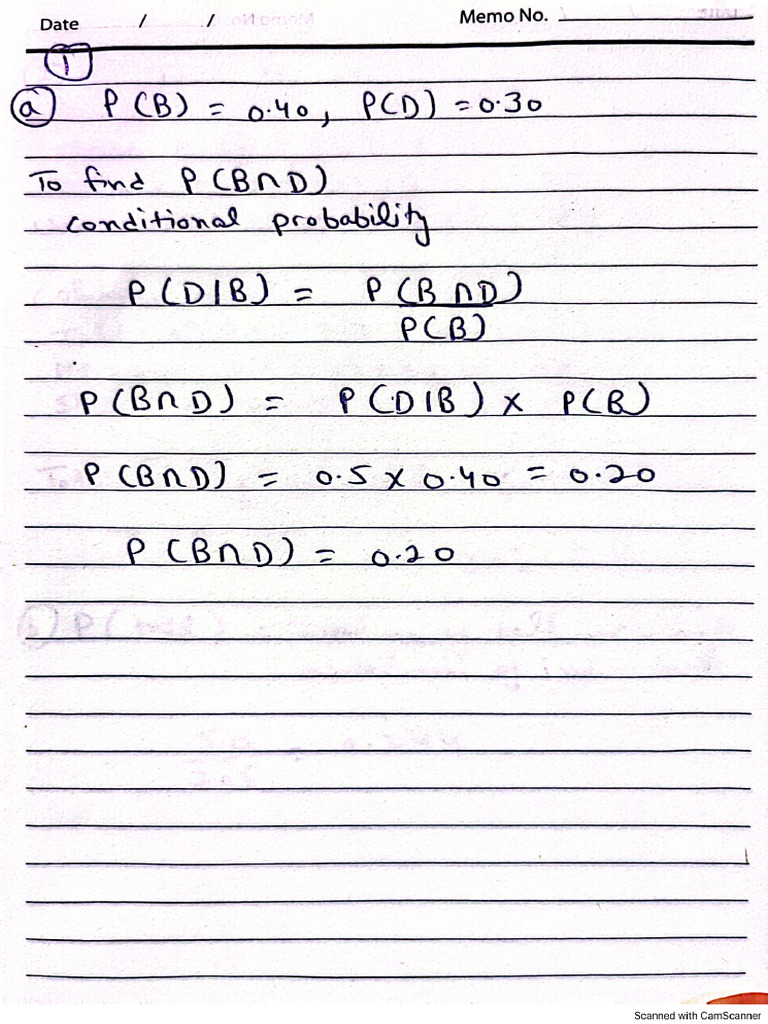 Date / / Memo No.
1
a P(B) = 0.40, P(D) = 0.30
To find P(B∩D)
conditional probability
P(D|B) = P(B∩D)
P(B)
P(B∩D) = P(D|B) × P(B)
P(B∩D) = 0.5 × 0.40 = 0.20
P(B∩D) = 0.20
Scanned with CamScanner